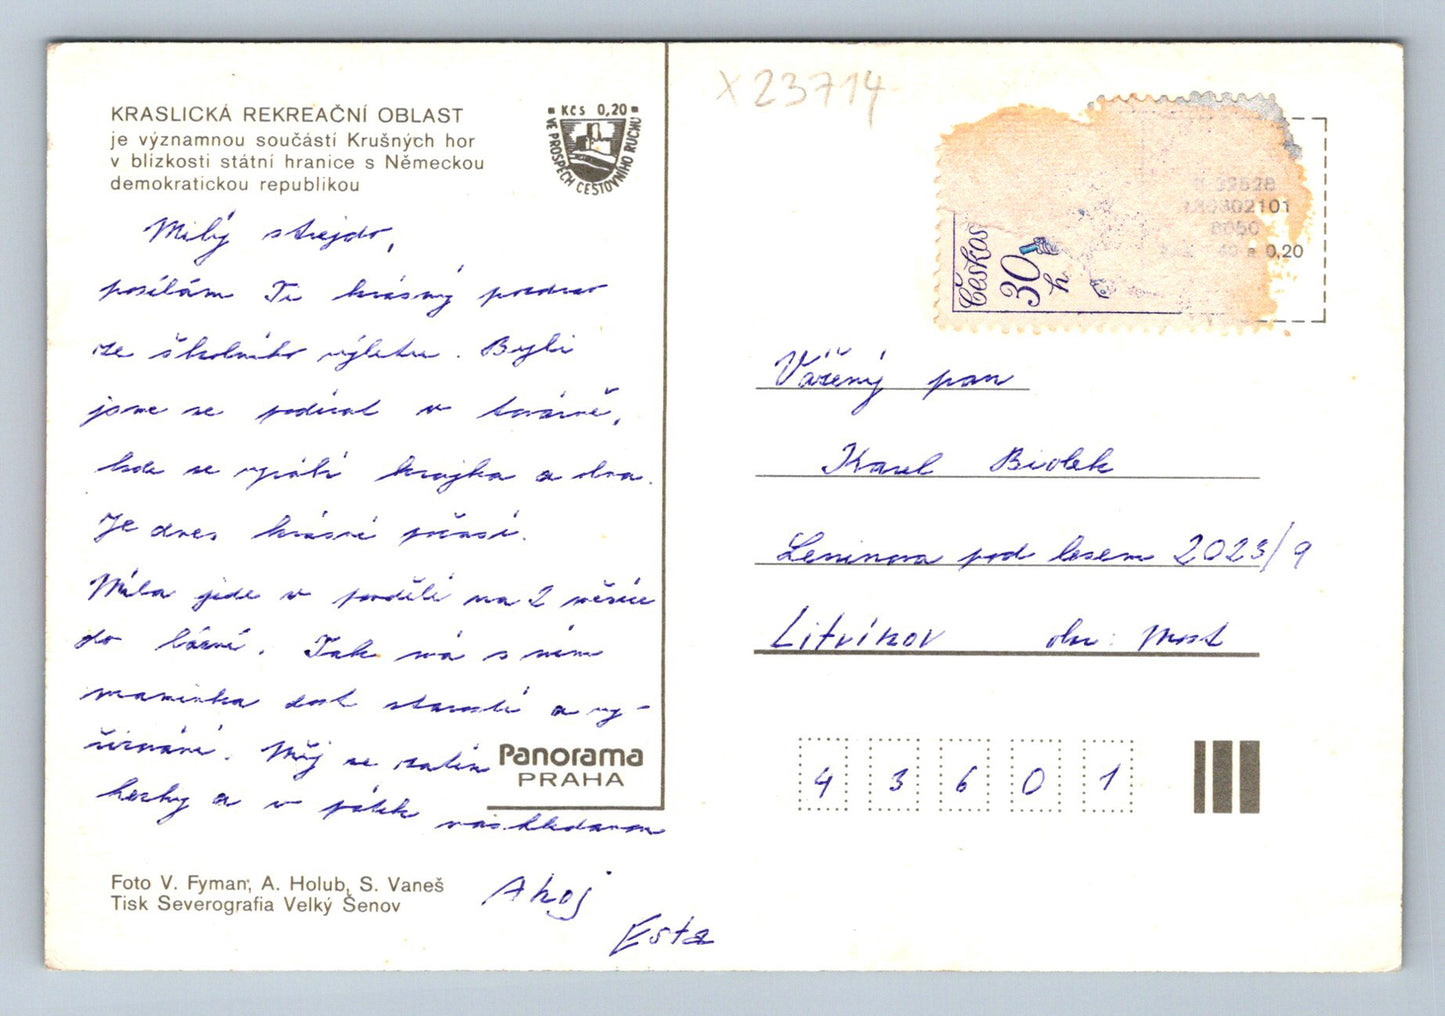 X 23714
KRASLICKÁ REKREAČNÍ OBLAST
je významnou součástí Krušných hor
v blízkosti státní hranice s Německou
demokratickou republikou
Kčs 0,20
VE PROSPĚCH CESTOVNÍHO RUCHU
Milý strejdo,
posílám Ti krásný pozdrav
ze školního výletu. Byli
jsme se podívat v továrně,
kde se vyrábí krajka a
Je dnes krásné počasí.
Míla jede v pondělí na 2 měsíce
do lázní. Tak má s ním
maminka dost starostí a vy-
řizování. Měj se zatím
hezky a v pátek
Ahoj
Esta
Panorama
PRAHA
Foto V. Fyman, A. Holub, S. Vaneš
Tisk Severografia Velký Šenov
Českos
30
h
102101
8050
0,20
Vážený pan
Karel Biolek
Leninova pod lesem 2023/9
Litvínov okr: Most
43601